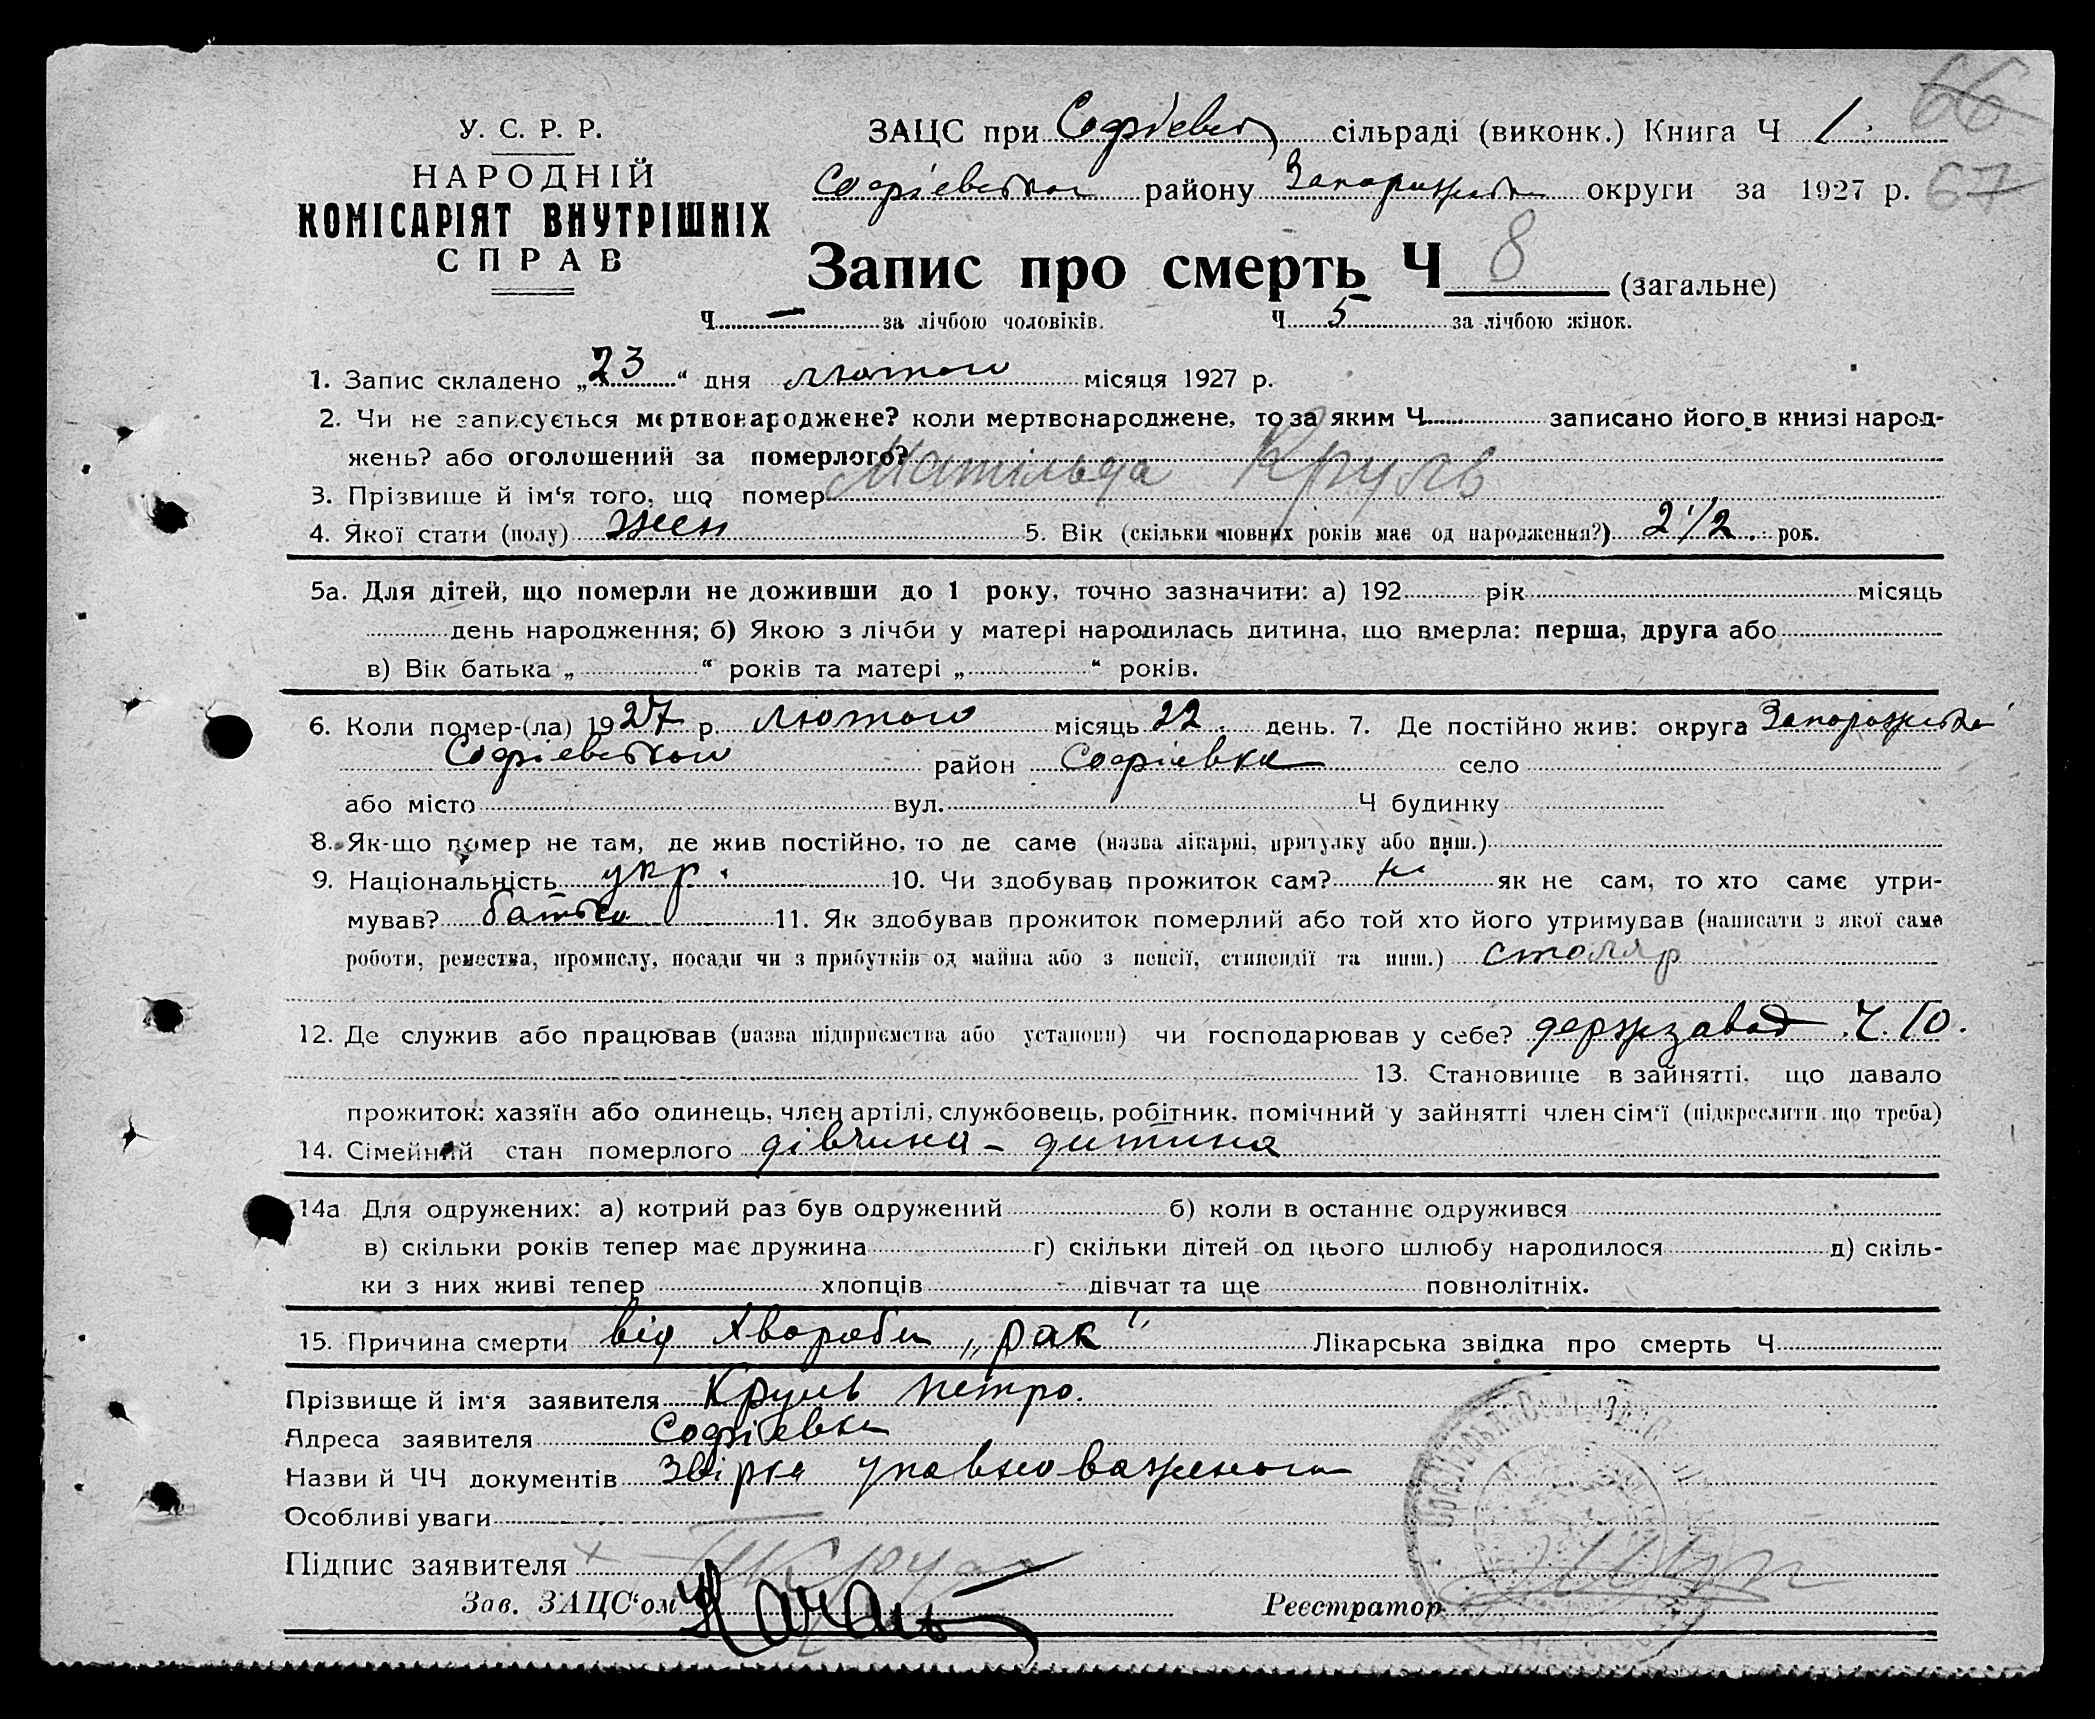 66
67
У. С. Р. Р.
НАРОДНІЙ
КОМІСАРІЯТ ВНУТРІШНІХ
СПРАВ
ЗАЦС при Софієвск сільраді (виконк.) Книга Ч 1
Софієвсткого району Запоризьк округи за 1927 р.
Запис про смерть Ч 8 (загальне)
Ч — за лічбою чоловіків. Ч 5 за лічбою жінок.
1. Запис складено „23“ дня лютого місяця 1927 р.
2. Чи не записується мертвонароджене? коли мертвонароджене, то за яким Ч записано його в книзі народ-
жень? або оголошений за померлого?
3. Прізвище й ім'я того, що помер Матільда Круль
4. Якої стати (полу) жен 5. Вік (скільки повних років має од народження?) 2 1/2 рок.
5а. Для дітей, що померли не доживши до 1 року, точно зазначити: а) 192 рік місяць
день народження; б) Якою з лічби у матері народилась дитина, що вмерла: перша, друга або
в) Вік батька „ “ років та матері „ “ років.
6. Коли помер-(ла) 1927 р. лютого місяць 22 день. 7. Де постійно жив: округа Запоризька
Софієвського район Софіевка село
або місто вул. Ч будинку
8. Як-що помер не там, де жив постійно, то де саме (назва лікарні, притулку або инш.)
9. Національність укр. 10. Чи здобував прожиток сам? ні як не сам, то хто саме утри-
мував? батько 11. Як здобував прожиток померлий або той хто його утримував (написати з якої саме
роботи, ремества, промислу, посади чи з прибутків од майна або з пенсії, стипендії та инш.) столяр
12. Де служив або працював (назва підприємства або установи) чи господарював у себе? держзавод Ч. 10.
13. Становище в зайнятті, що давало
прожиток: хазяїн або одинець, член артілі, службовець, робітник, помічний у зайнятті член сім'ї (підкреслити що треба)
14. Сімейний стан померлого дівчина – дитина
14а Для одружених: а) котрий раз був одружений б) коли в останнє одружився
в) скільки років тепер має дружина г) скільки дітей од цього шлюбу народилося д) скіль-
ки з них живі тепер хлопців дівчат та ще повнолітніх.
15. Причина смерти від хвороби „рак“ Лікарська звідка про смерть Ч
Прізвище й ім'я заявителя Круль Петро.
Адреса заявителя Софіевка
Назви й ЧЧ документів Звірка уповноваженого
Особливі уваги
Підпис заявителя
Зав. ЗАЦС'ом
Реєстратор